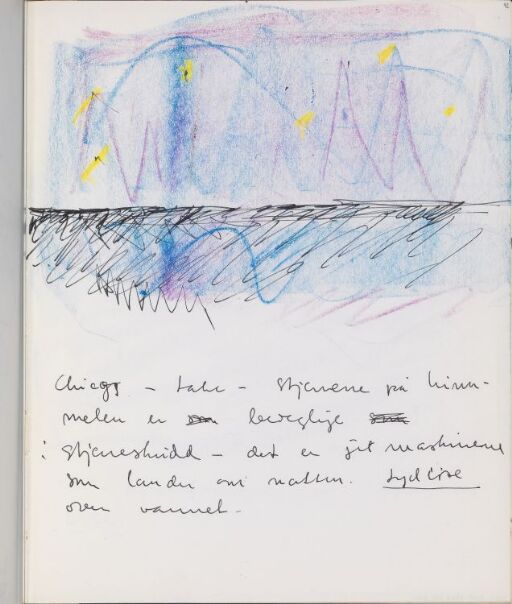 Chicago – Lake – Stjernene på him-
melen er bevegelige
i stjerneskudd – det er jetmaskinene
som lander om natten. Lydløse
over vannet.